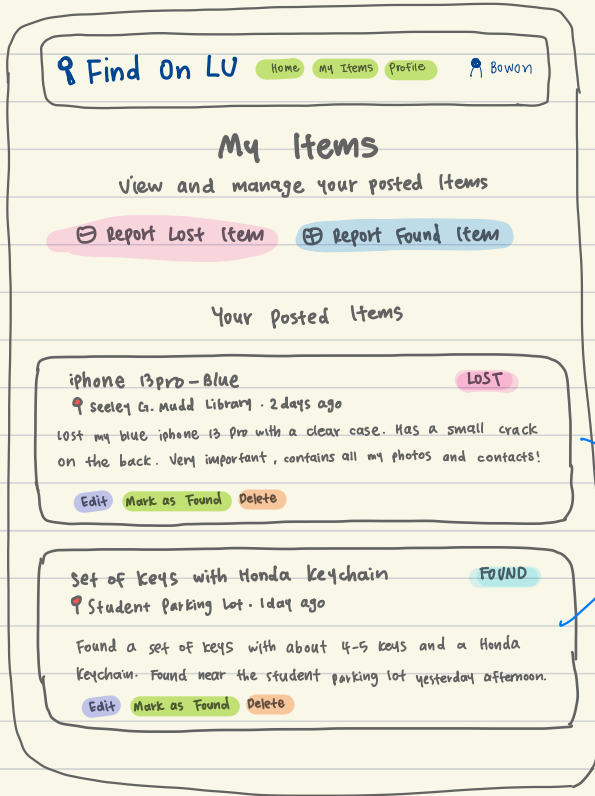 Find On LU Home My Items Profile Bowon
My Items
View and manage your posted Items
Report Lost Item Report Found Item
Your Posted Items
iphone 13pro-Blue LOST
Seeley G. Mudd Library · 2days ago
Lost my blue iphone 13 Pro with a clear case. Has a small crack
on the back. Very important, contains all my photos and contacts!
Edit Mark as Found Delete
Set of Keys with Honda Keychain FOUND
Student Parking Lot · 1day ago
Found a set of keys with about 4-5 keys and a Honda
Keychain. Found near the student parking lot yesterday afternoon.
Edit Mark as Found Delete